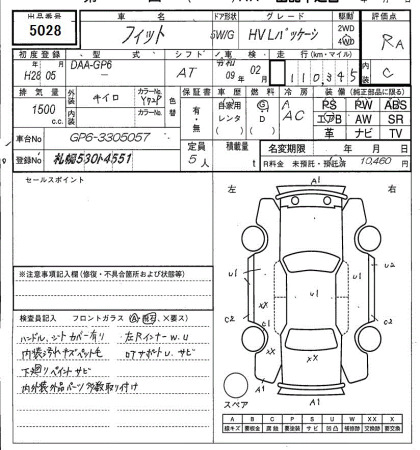 出品番号 車名 ドア形状 グレード 駆動 評価点
5028 フィット 5W/G HV Lパッケージ 2WD 4WD RA
初度登録 型式 シフト 車検 走行(km・マイル) 内装
H28 05 DAA-GP6 AT 09 02 110,345 C
排気量 外装 キイロ カラーNo. Y72P 色替 保証書 車歴 燃料 冷房 装備(純正部品に限る)
1500 c.c. 内装 カラーNo. 有・無 自家用 レンタ G D A AC PS PW ABS
エアB AW SR
革 ナビ TV
車台No GP6-3305057 定員 積載量 名変期限 年 月 日
登録No 札幌530ト4551 5人 t R料金 未預託・預託済 10,460 円
セールスポイント
※注意事項記入欄(修復・不具合箇所および状態等)
検査員記入欄 フロントガラス (A・飛石・×要ス)
ハンドル、シートカバー有り 左Rインナー W.U
内装汚れキズペット毛
下廻りペイントサビ
内外装外品パーツ多数取り付け
左 A1 右
U1 U1 U2
C2 XX C2
A1 XX A1
A1
スペア
A B C P S U W X XX ×
線キズ 要板金 腐蝕 要塗装 サビ 凹凸 補修跡 要交換